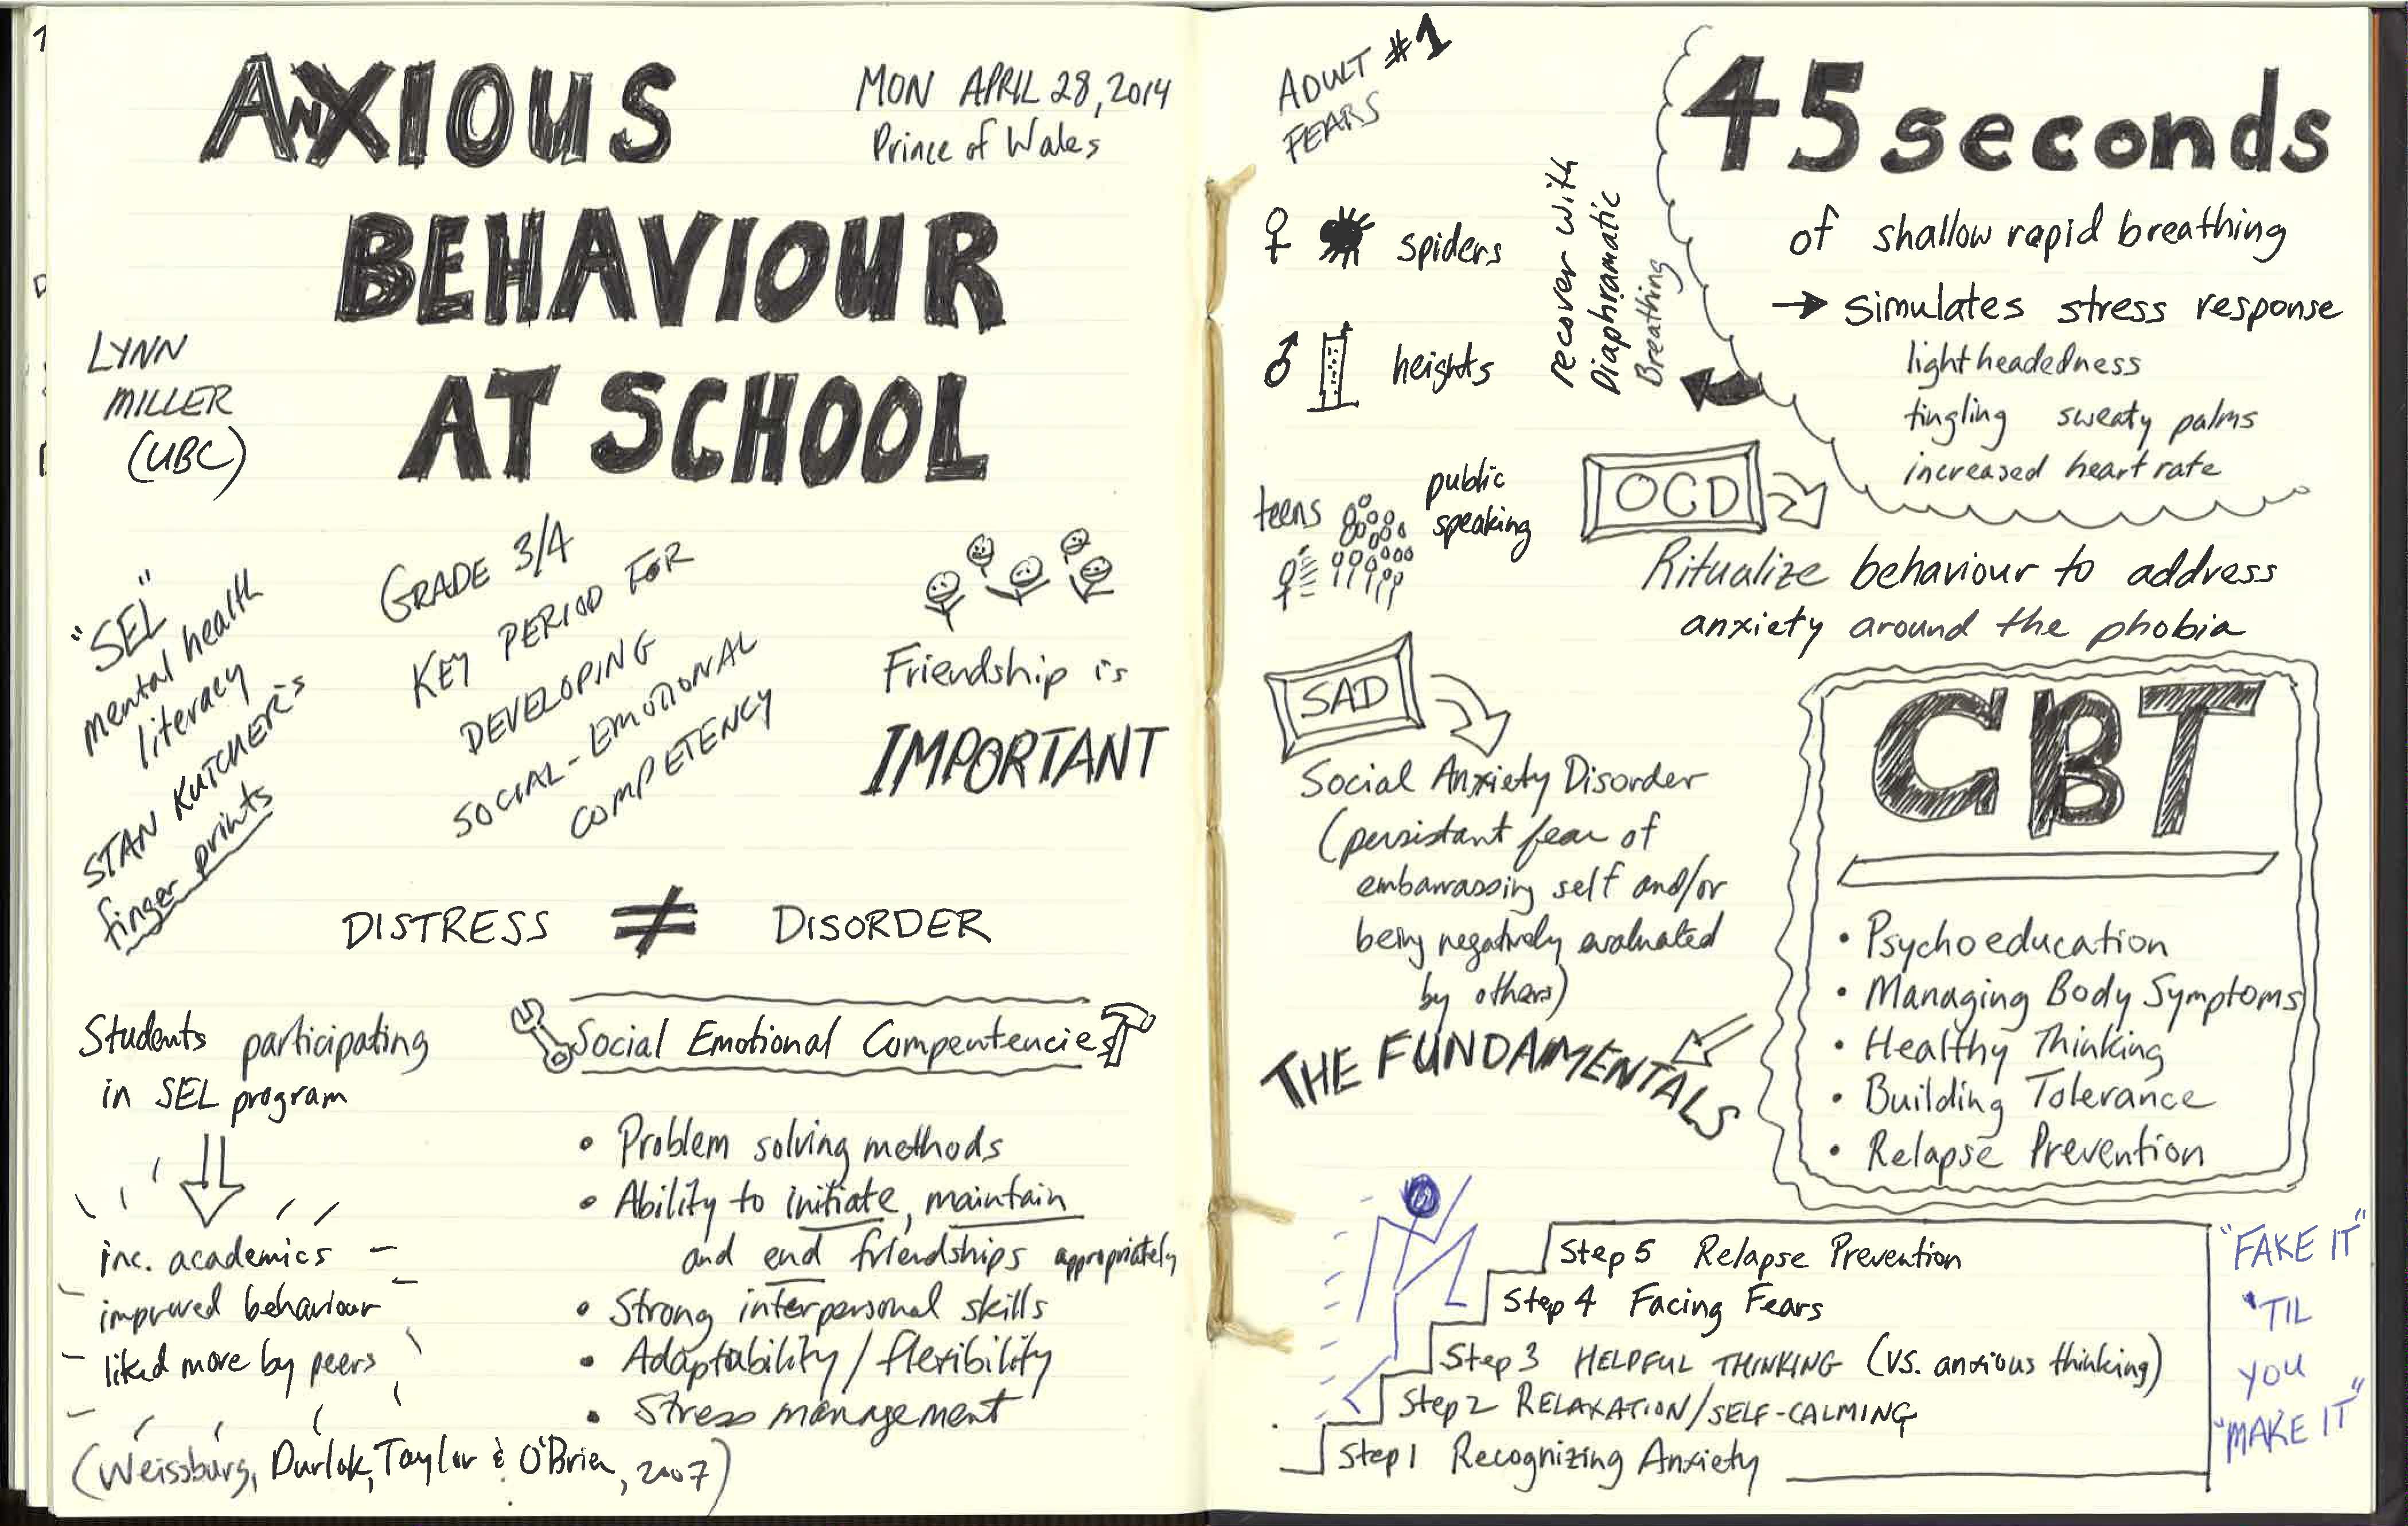 ANXIOUS
BEHAVIOUR
AT SCHOOL
MON APRIL 28, 2014
Prince of Wales
LYNN
MILLER
(UBC)
"SEL"
mental health
literacy
STAN KUTCHER-s
finger prints
GRADE 3/4
KEY PERIOD FOR
DEVELOPING
SOCIAL-EMOTIONAL
COMPETENCY
Friendship is
IMPORTANT
DISTRESS ≠ DISORDER
Students participating
in SEL program
inc. academics
improved behaviour
liked more by peers
(Weissburg, Durlak, Taylor & O'Brien, 2007)
Social Emotional Compentencies
• Problem solving methods
• Ability to initiate, maintain
and end friendships appropriately
• Strong interpersonal skills
• Adaptability/flexibility
• Stress management
ADULT #1
FEARS
♀ spiders
♂ heights
teens public
speaking
recover with
Diaphramatic
Breathing
45 seconds
of shallow rapid breathing
→ simulates stress response
lightheadedness
tingling sweaty palms
increased heart rate
OCD
Ritualize behaviour to address
anxiety around the phobia
SAD
Social Anxiety Disorder
(persistant fear of
embarrassing self and/or
being negatively evaluated
by others)
THE FUNDAMENTALS
CBT
• Psychoeducation
• Managing Body Symptoms
• Healthy Thinking
• Building Tolerance
• Relapse Prevention
Step 5 Relapse Prevention
Step 4 Facing Fears
Step 3 HELPFUL THINKING (vs. anxious thinking)
Step 2 RELAXATION/SELF-CALMING
Step 1 Recognizing Anxiety
"FAKE IT"
'TIL
YOU
"MAKE IT"